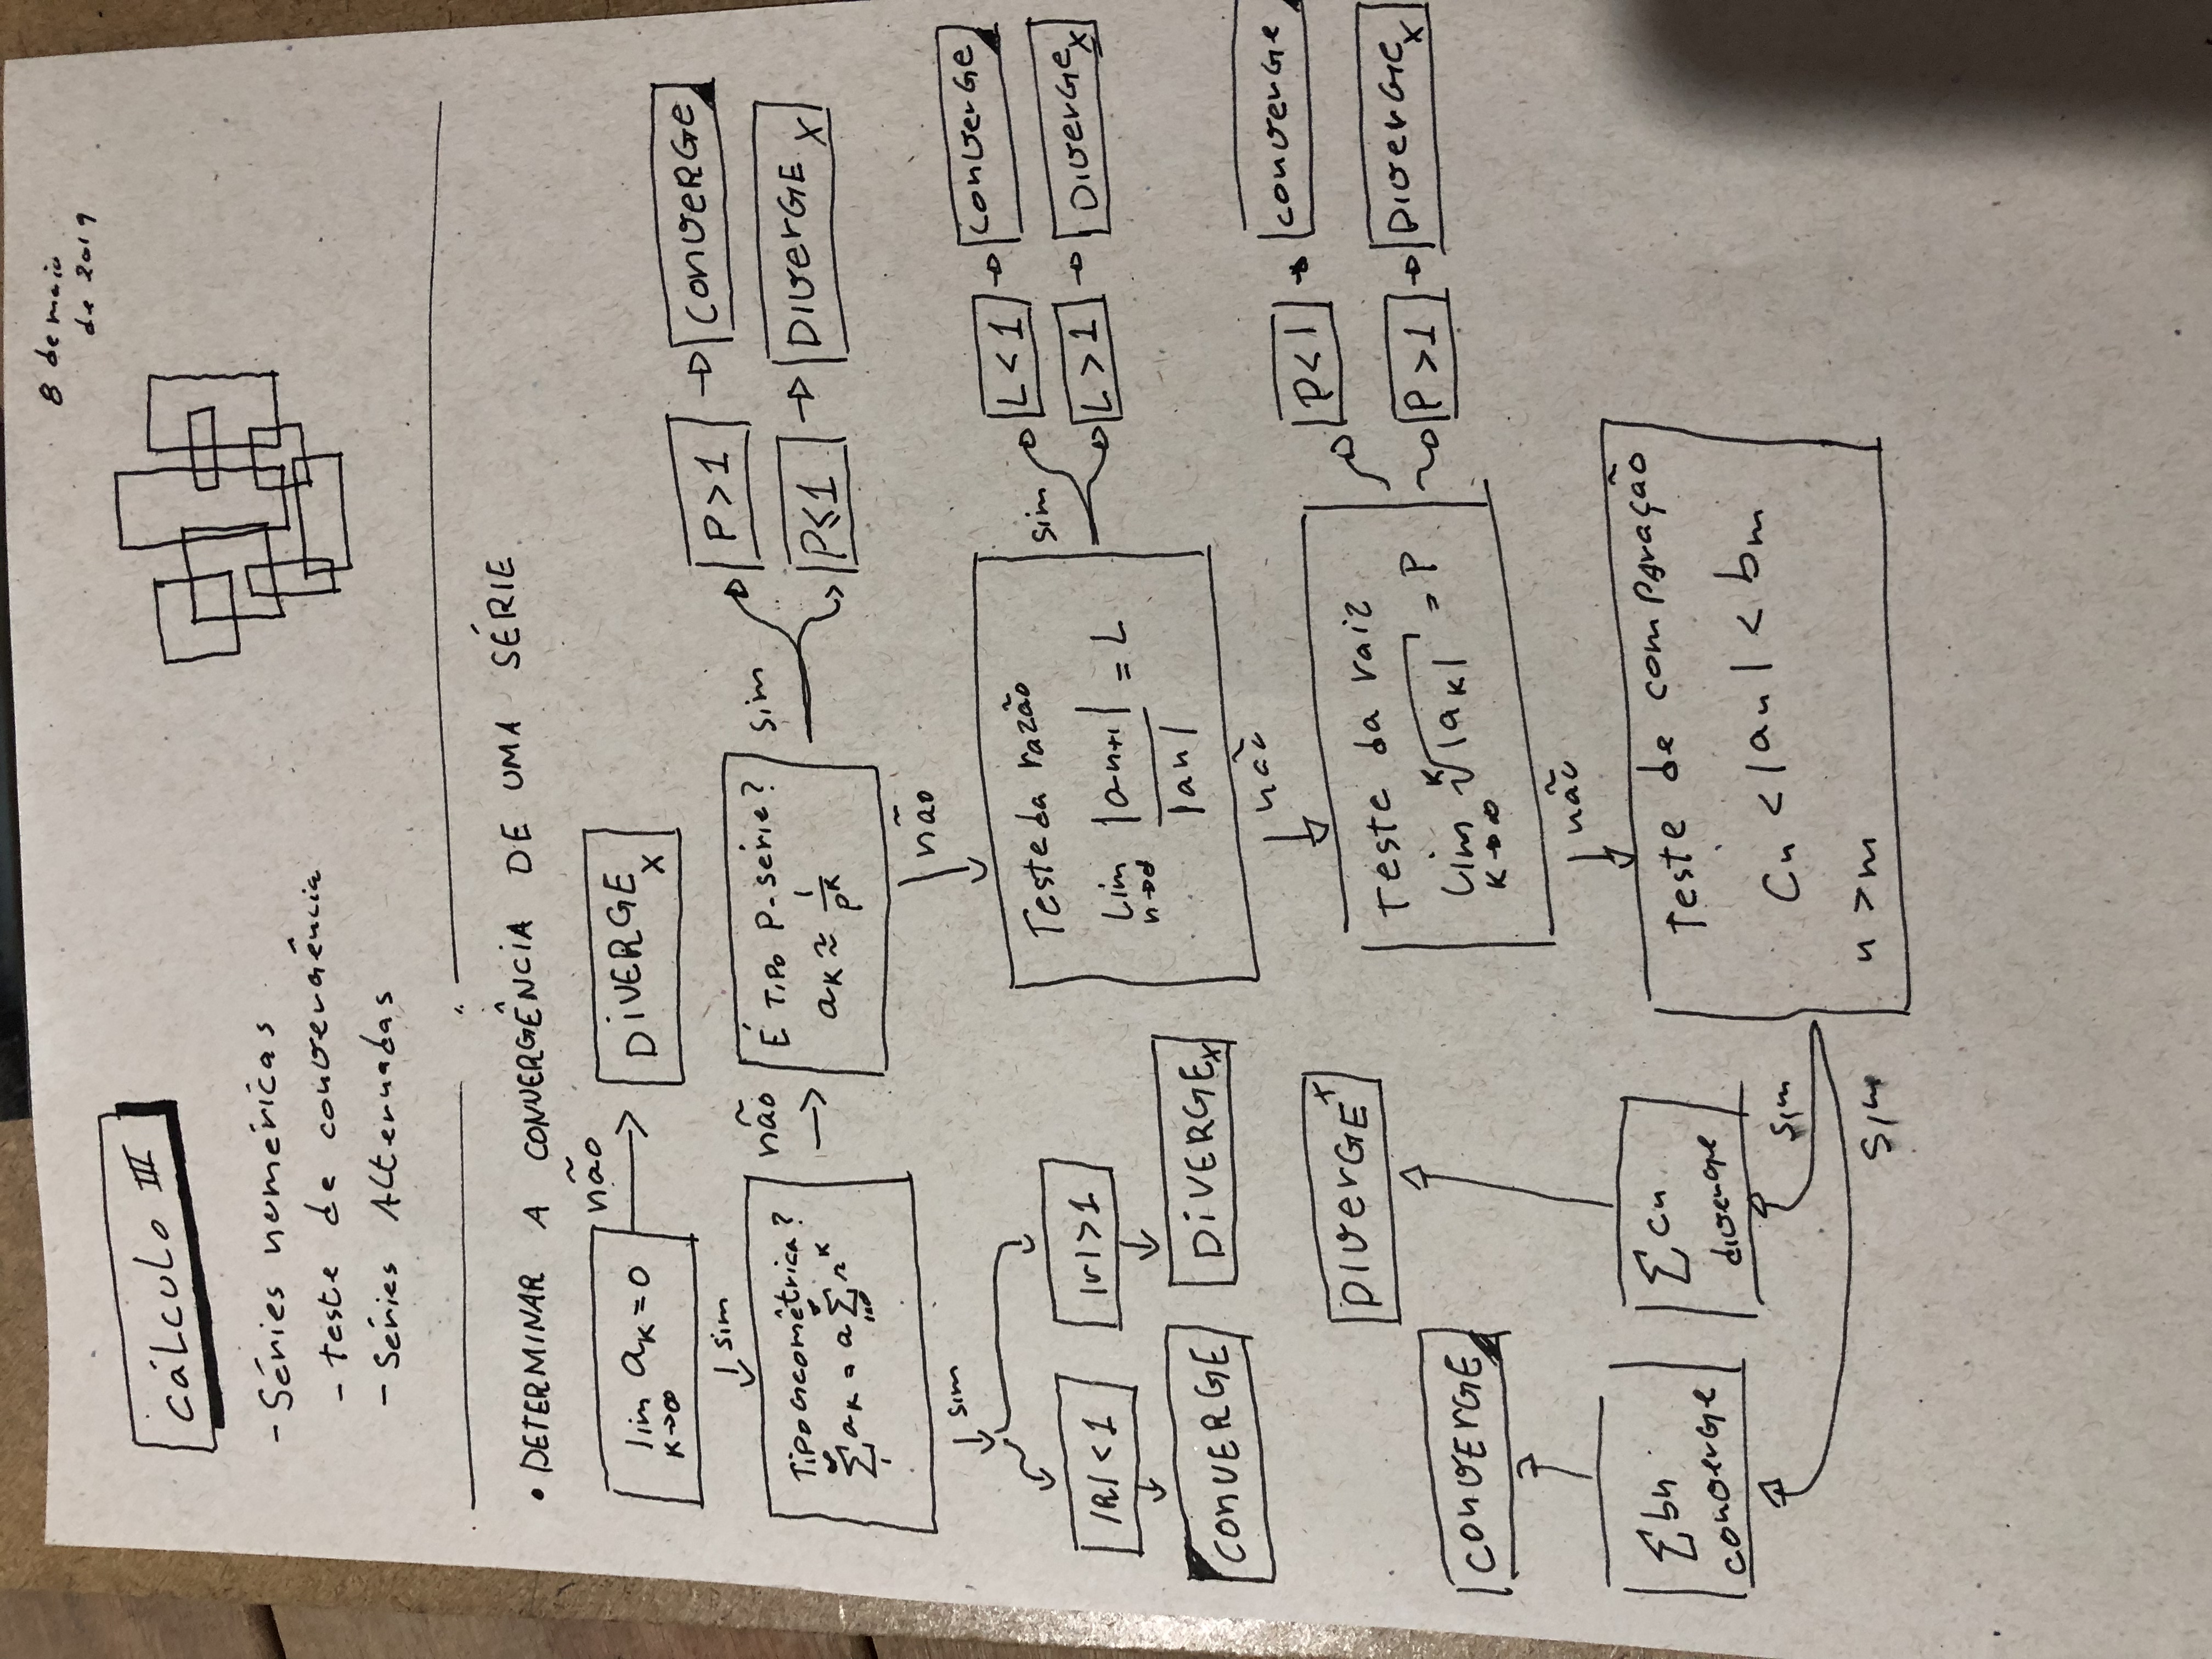 8 de maio
de 2019
Cálculo III
- Séries numéricas
- teste de convergência
- Séries Alternadas
• DETERMINAR A CONVERGÊNCIA DE UMA SÉRIE
lim aₖ = 0
K→∞
não
DIVERGE x
sim
Tipo Geométrica?
∞∑1 aₖ = a ∞∑i=0 r^K
não
É Tipo P-série?
aₖ ≈ 1/p^K
sim
P > 1
CONVERGE
P ≤ 1
DIVERGE x
sim
|R| < 1
|r| > 1
CONVERGE
DIVERGE x
não
Teste da razão
Lim |an+1| = L
n→∞ |an|
sim
L < 1
converge
L > 1
Diverge x
não
Teste da raiz
Lim ᴷ√|aₖ| = P
K→∞
P < 1
converge
P > 1
Diverge x
não
Teste de comparação
Cn < |an| < bm
n > m
sim
sim
∑ bn
converge
∑ cn
diverge
CONVERGE
DIVERGE x